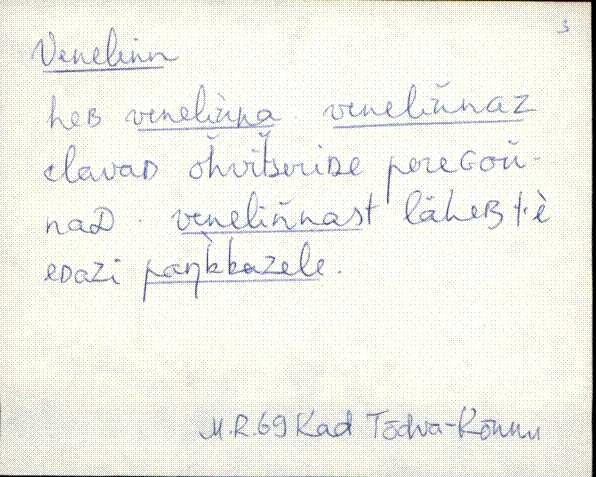 3
Venelinn
heB veneliǹna veneliňnaz
elavaD ohvitserìDe pereGoǔ-
naD. veneliňnast läheB t·è
eDazi paŋ̀kkazele.
M.R. 69 Kad Tõdva-Kõnnu